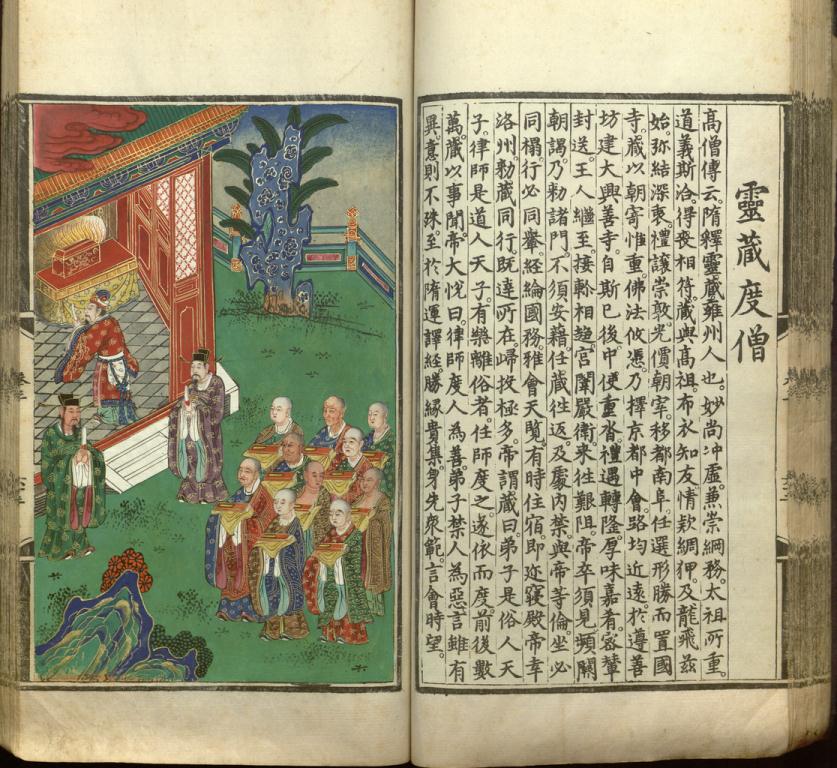 靈藏度僧
高僧傳云。隋釋靈藏雍州人也。妙尚冲虛。兼崇綱務。太祖所重。
道義斯洽。得喪相待。藏與高祖。布衣知友。情欵綢狎。及龍飛茲
始。弥結深衷。禮讓崇敦。光價朝宰。移都南阜。任選形勝而置國
寺。藏以朝寄惟重。佛法攸憑。乃擇京都中會。路均近遠。於遵善
坊建大興善寺。自斯已後。中使重沓。禮遇轉隆。厚味嘉肴。密輦
封送。王人繼至。接軫相趨。宮闈嚴衛。来往艱阻。帝卒須見。頻闕
朝謁。乃勑諸門。不須安藉。任藏往返。及處內禁。與帝等倫。坐必
同榻。行必同轝。經綸國務。雅會天覽。有時住宿。即迩寢殿。帝幸
洛州。勑藏同行。既達所在。歸投極多。帝謂藏曰。弟子是俗人天
子。律師是道人天子。有樂離俗者。任師度之。遂依而度。前後數
萬。藏以事聞。帝大悅曰。律師度人為善。弟子禁人為惡。言雖有
異。意則不殊。至於隋運譯經。勝緣貴集。身先眾範。言會時望。